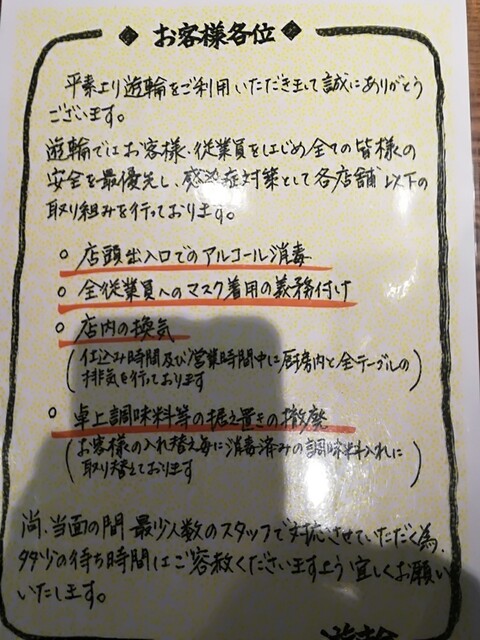 お客様各位
平素より遊輪をご利用いただきまして誠にありがとう
ございます。
遊輪ではお客様、従業員をはじめ全ての皆様の
安全を最優先し、感染症対策として各店舗以下の
取り組みを行っております。
○ 店頭出入口でのアルコール消毒
○ 全従業員へのマスク着用の義務付け
○ 店内の換気
(仕込み時間及び営業時間中に厨房内と全テーブルの
排気を行っております)
○ 卓上調味料等の据え置きの撤廃
(お客様の入れ替え毎に消毒済みの調味料入れに
取り替えております)
尚、当面の間 最少人数のスタッフで対応させていただく為、
多少の待ち時間はご容赦くださいますよう宜しくお願い
いたします。